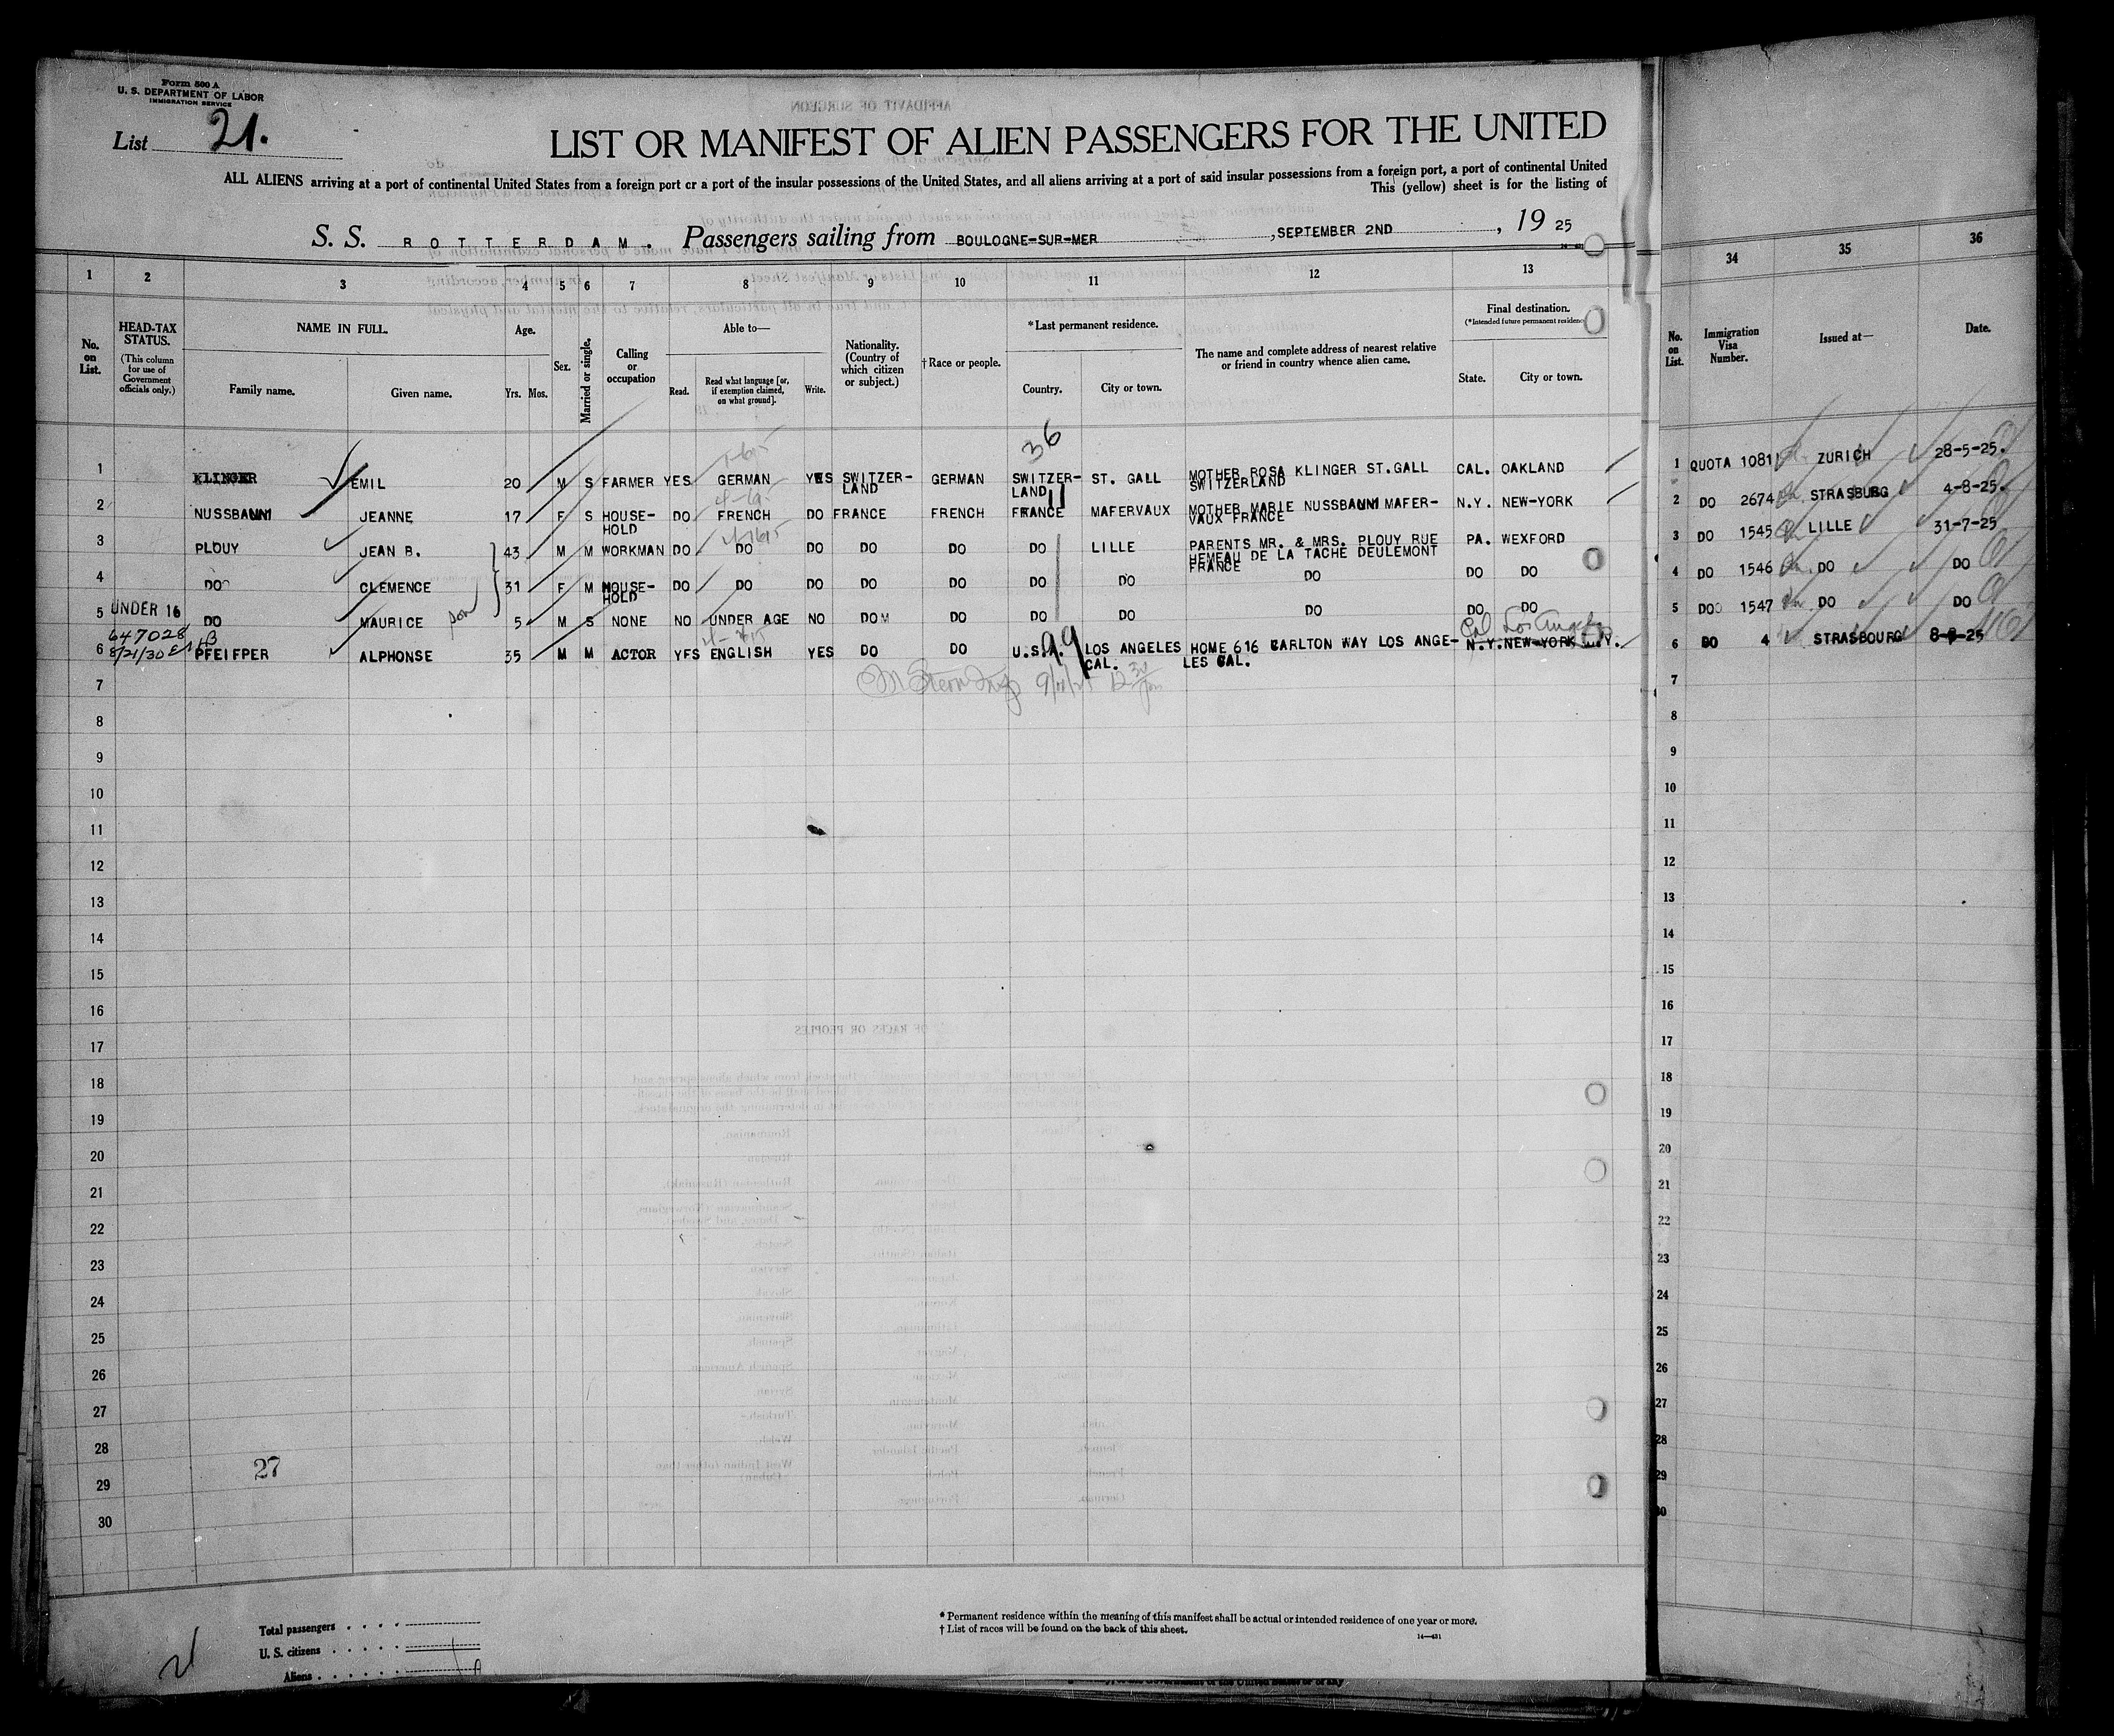 Form 500 A
U. S. DEPARTMENT OF LABOR
IMMIGRATION SERVICE
List 21.
LIST OR MANIFEST OF ALIEN PASSENGERS FOR THE UNITED
ALL ALIENS arriving at a port of continental United States from a foreign port or a port of the insular possessions of the United States, and all aliens arriving at a port of said insular possessions from a foreign port, a port of continental United
This (yellow) sheet is for the listing of
S. S. ROTTERDAM. Passengers sailing from BOULOGNE-SUR-MER, SEPTEMBER 2ND, 19 25
1 2 3 4 5 6 7 8 9 10 11 12 13 34 35 36
No. on List.
HEAD-TAX STATUS.
(This column for use of Government officials only.)
NAME IN FULL.
Family name. Given name.
Age.
Yrs. Mos.
Sex.
Married or single.
Calling or occupation
Able to—
Read. Read what language [or, if exemption claimed, on what ground]. Write.
Nationality. (Country of which citizen or subject.)
†Race or people.
*Last permanent residence.
Country. City or town.
The name and complete address of nearest relative or friend in country whence alien came.
Final destination.
(*Intended future permanent residence
State. City or town.
No. on List.
Immigration Visa Number.
Issued at—
Date.
36
1 KLINGER EMIL 20 M S FARMER YES GERMAN YES SWITZER-LAND GERMAN SWITZER-LAND ST. GALL MOTHER ROSA KLINGER ST.GALL SWITZERLAND CAL. OAKLAND 1 QUOTA 1081 ZURICH 28-5-25.
2 NUSSBAUM JEANNE 17 F S HOUSE-HOLD DO FRENCH DO FRANCE FRENCH FRANCE MAFERVAUX MOTHER MARIE NUSSBAUM MAFER-VAUX FRANCE N.Y. NEW-YORK 2 DO 2674 STRASBURG 4-8-25.
3 PLOUY JEAN B. 43 M M WORKMAN DO DO DO DO DO DO LILLE PARENTS MR. & MRS. PLOUY RUE HEMEAU DE LA TACHE DEULEMONT FRANCE PA. WEXFORD 3 DO 1545 LILLE 31-7-25
4 DO CLEMENCE 31 F M HOUSE-HOLD DO DO DO DO DO DO DO DO DO DO 4 DO 1546 DO DO
5 UNDER 16 DO MAURICE son 5 M S NONE NO UNDER AGE NO DO DO DO DO DO DO DO 5 DO 1547 DO DO
647028
8/21/30
Cal Los Angeles
6 PFEIFPER ALPHONSE 35 M M ACTOR YES ENGLISH YES DO DO U.S.A. 99 LOS ANGELES CAL. HOME 616 CARLTON WAY LOS ANGE-LES CAL. N.Y. NEW-YORK N.Y. 6 DO 4 STRASBOURG 8-8-25
7 7
8 8
9 9
10 10
11 11
12 12
13 13
14 14
15 15
16 16
17 17
18 18
19 19
20 20
21 21
22 22
23 23
24 24
25 25
26 26
27 27
28 28
27
29 29
30 30
Total passengers
U. S. citizens
Aliens
* Permanent residence within the meaning of this manifest shall be actual or intended residence of one year or more.
† List of races will be found on the back of this sheet.
14—431